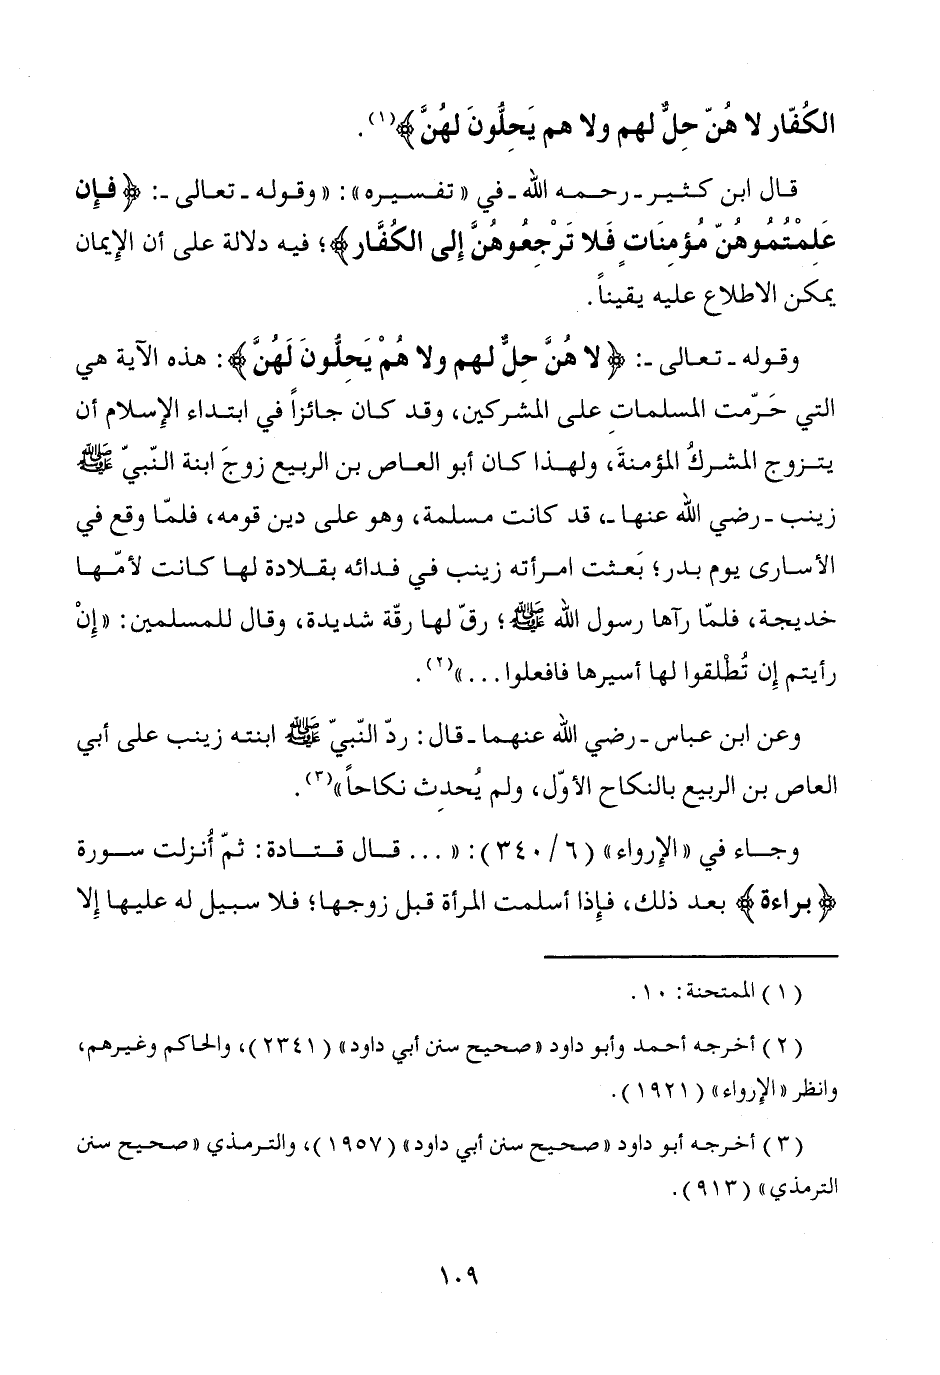 الكُفّار لا هُنّ حِلٌّ لهم ولا هم يَحِلُّونَ لهُنَّ﴾(١).
قال ابن كثير ـ رحمه الله ـ في «تفسيره»: «وقوله ـ تعالى ـ: ﴿فإن
عَلِمْتُمُوهُنّ مُؤمِنَاتٍ فَلا تَرْجِعُوهُنَّ إلى الكُفَّار﴾؛ فيه دلالة على أن الإيمان
يمكن الاطلاع عليه يقيناً.
وقوله ـ تعالى ـ: ﴿لا هُنَّ حِلٌّ لهم ولا هُمْ يَحِلُّونَ لَهُنَّ﴾: هذه الآية هي
التي حَرّمت المسلمات على المشركين، وقد كان جائزاً في ابتداء الإسلام أن
يتزوج المشركُ المؤمنةَ، ولهذا كان أبو العاص بن الربيع زوجَ ابنة النّبيّ ﷺ
زينب ـ رضي الله عنها ـ، قد كانت مسلمة، وهو على دين قومه، فلمّا وقع في
الأسارى يوم بدر؛ بَعثت امرأته زينب في فدائه بقلادة لها كانت لأمّها
خديجة، فلمّا رآها رسول الله ﷺ؛ رقّ لها رقّة شديدة، وقال للمسلمين: «إنْ
رأيتم إن تُطْلقوا لها أسيرها فافعلوا...»(٢).
وعن ابن عباس ـ رضي الله عنهما ـ قال: ردّ النّبيّ ﷺ ابنته زينب على أبي
العاص بن الربيع بالنكاح الأوّل، ولم يُحدِث نكاحاً»(٣).
وجاء في «الإرواء» (٦/٣٤٠): «... قال قتادة: ثمّ أُنزلت سورة
﴿براءة﴾ بعد ذلك، فإذا أسلمت المرأة قبل زوجها؛ فلا سبيل له عليها إلا
(١) الممتحنة: ١٠.
(٢) أخرجه أحمد وأبو داود «صحيح سنن أبي داود» (٢٣٤١)، والحاكم وغيرهم،
وانظر «الإرواء» (١٩٢١).
(٣) أخرجه أبو داود «صحيح سنن أبي داود» (١٩٥٧)، والترمذي «صحيح سنن
الترمذي» (٩١٣).
١٠٩